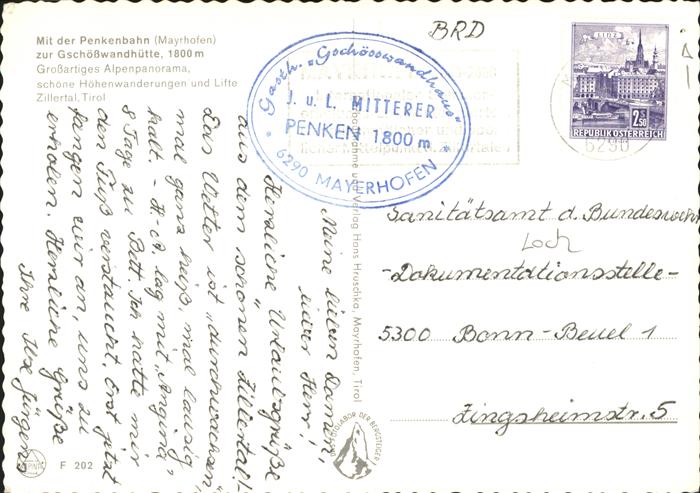 Mit der Penkenbahn (Mayrhofen)
zur Gschößwandhütte, 1800 m
Großartiges Alpenpanorama,
schöne Höhenwanderungen und Lifte
Zillertal, Tirol
BRD
Gasth. „Gschösswandhaus“
J. u. L. MITTERER
PENKEN 1800 m
* 6290 MAYERHOFEN *
LINZ
2.50
REPUBLIK ÖSTERREICH
6290
Sanitätsamt d. Bundeswehr
Loch
-Dokumentationsstelle-
5300 Bonn-Beuel 1
Zingsheimstr. 5
Meine lieben Damen,
lieber Herr!
Herzliche Urlaubsgrüße
aus dem schönen Zillertal!
Das Wetter ist „durchwachsen“,
mal ganz heiß, mal lausig
kalt. - H.-A. lag mit „Angina“
8 Tage zu Bett. Ich hatte mir
den Fuß verstaucht. Erst jetzt
fangen wir an, uns zu
erholen. Herzliche Grüße
Ihre Ilse Jürgens
Verlag Hans Hruschka, Mayrhofen, Tirol
FARBFOTOLABOR DER BERGSTEIGER
ALPINA
F 202